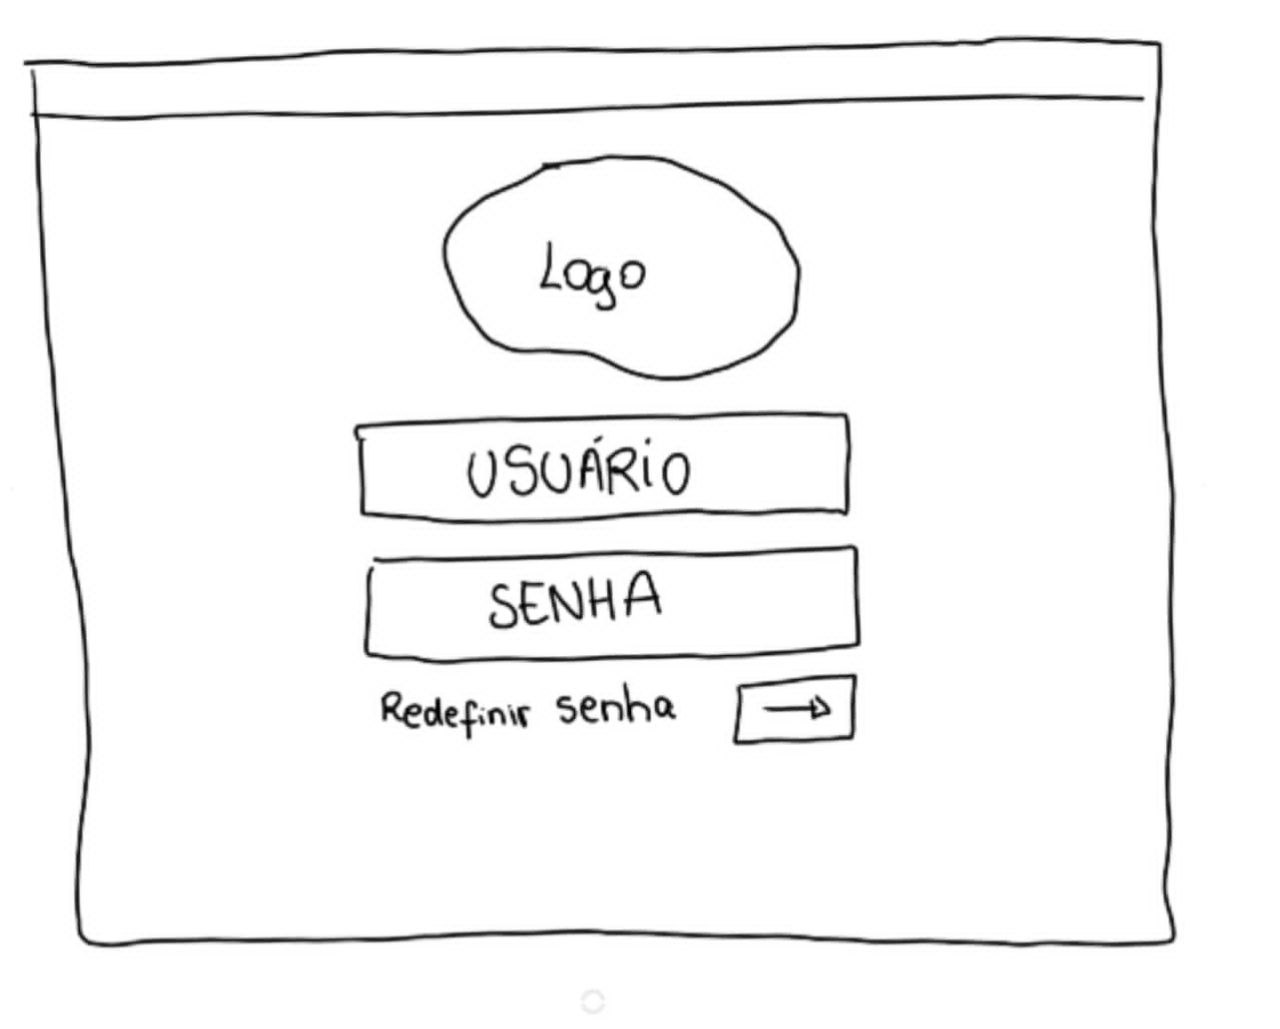 Logo
USUÁRIO
SENHA
Redefinir senha